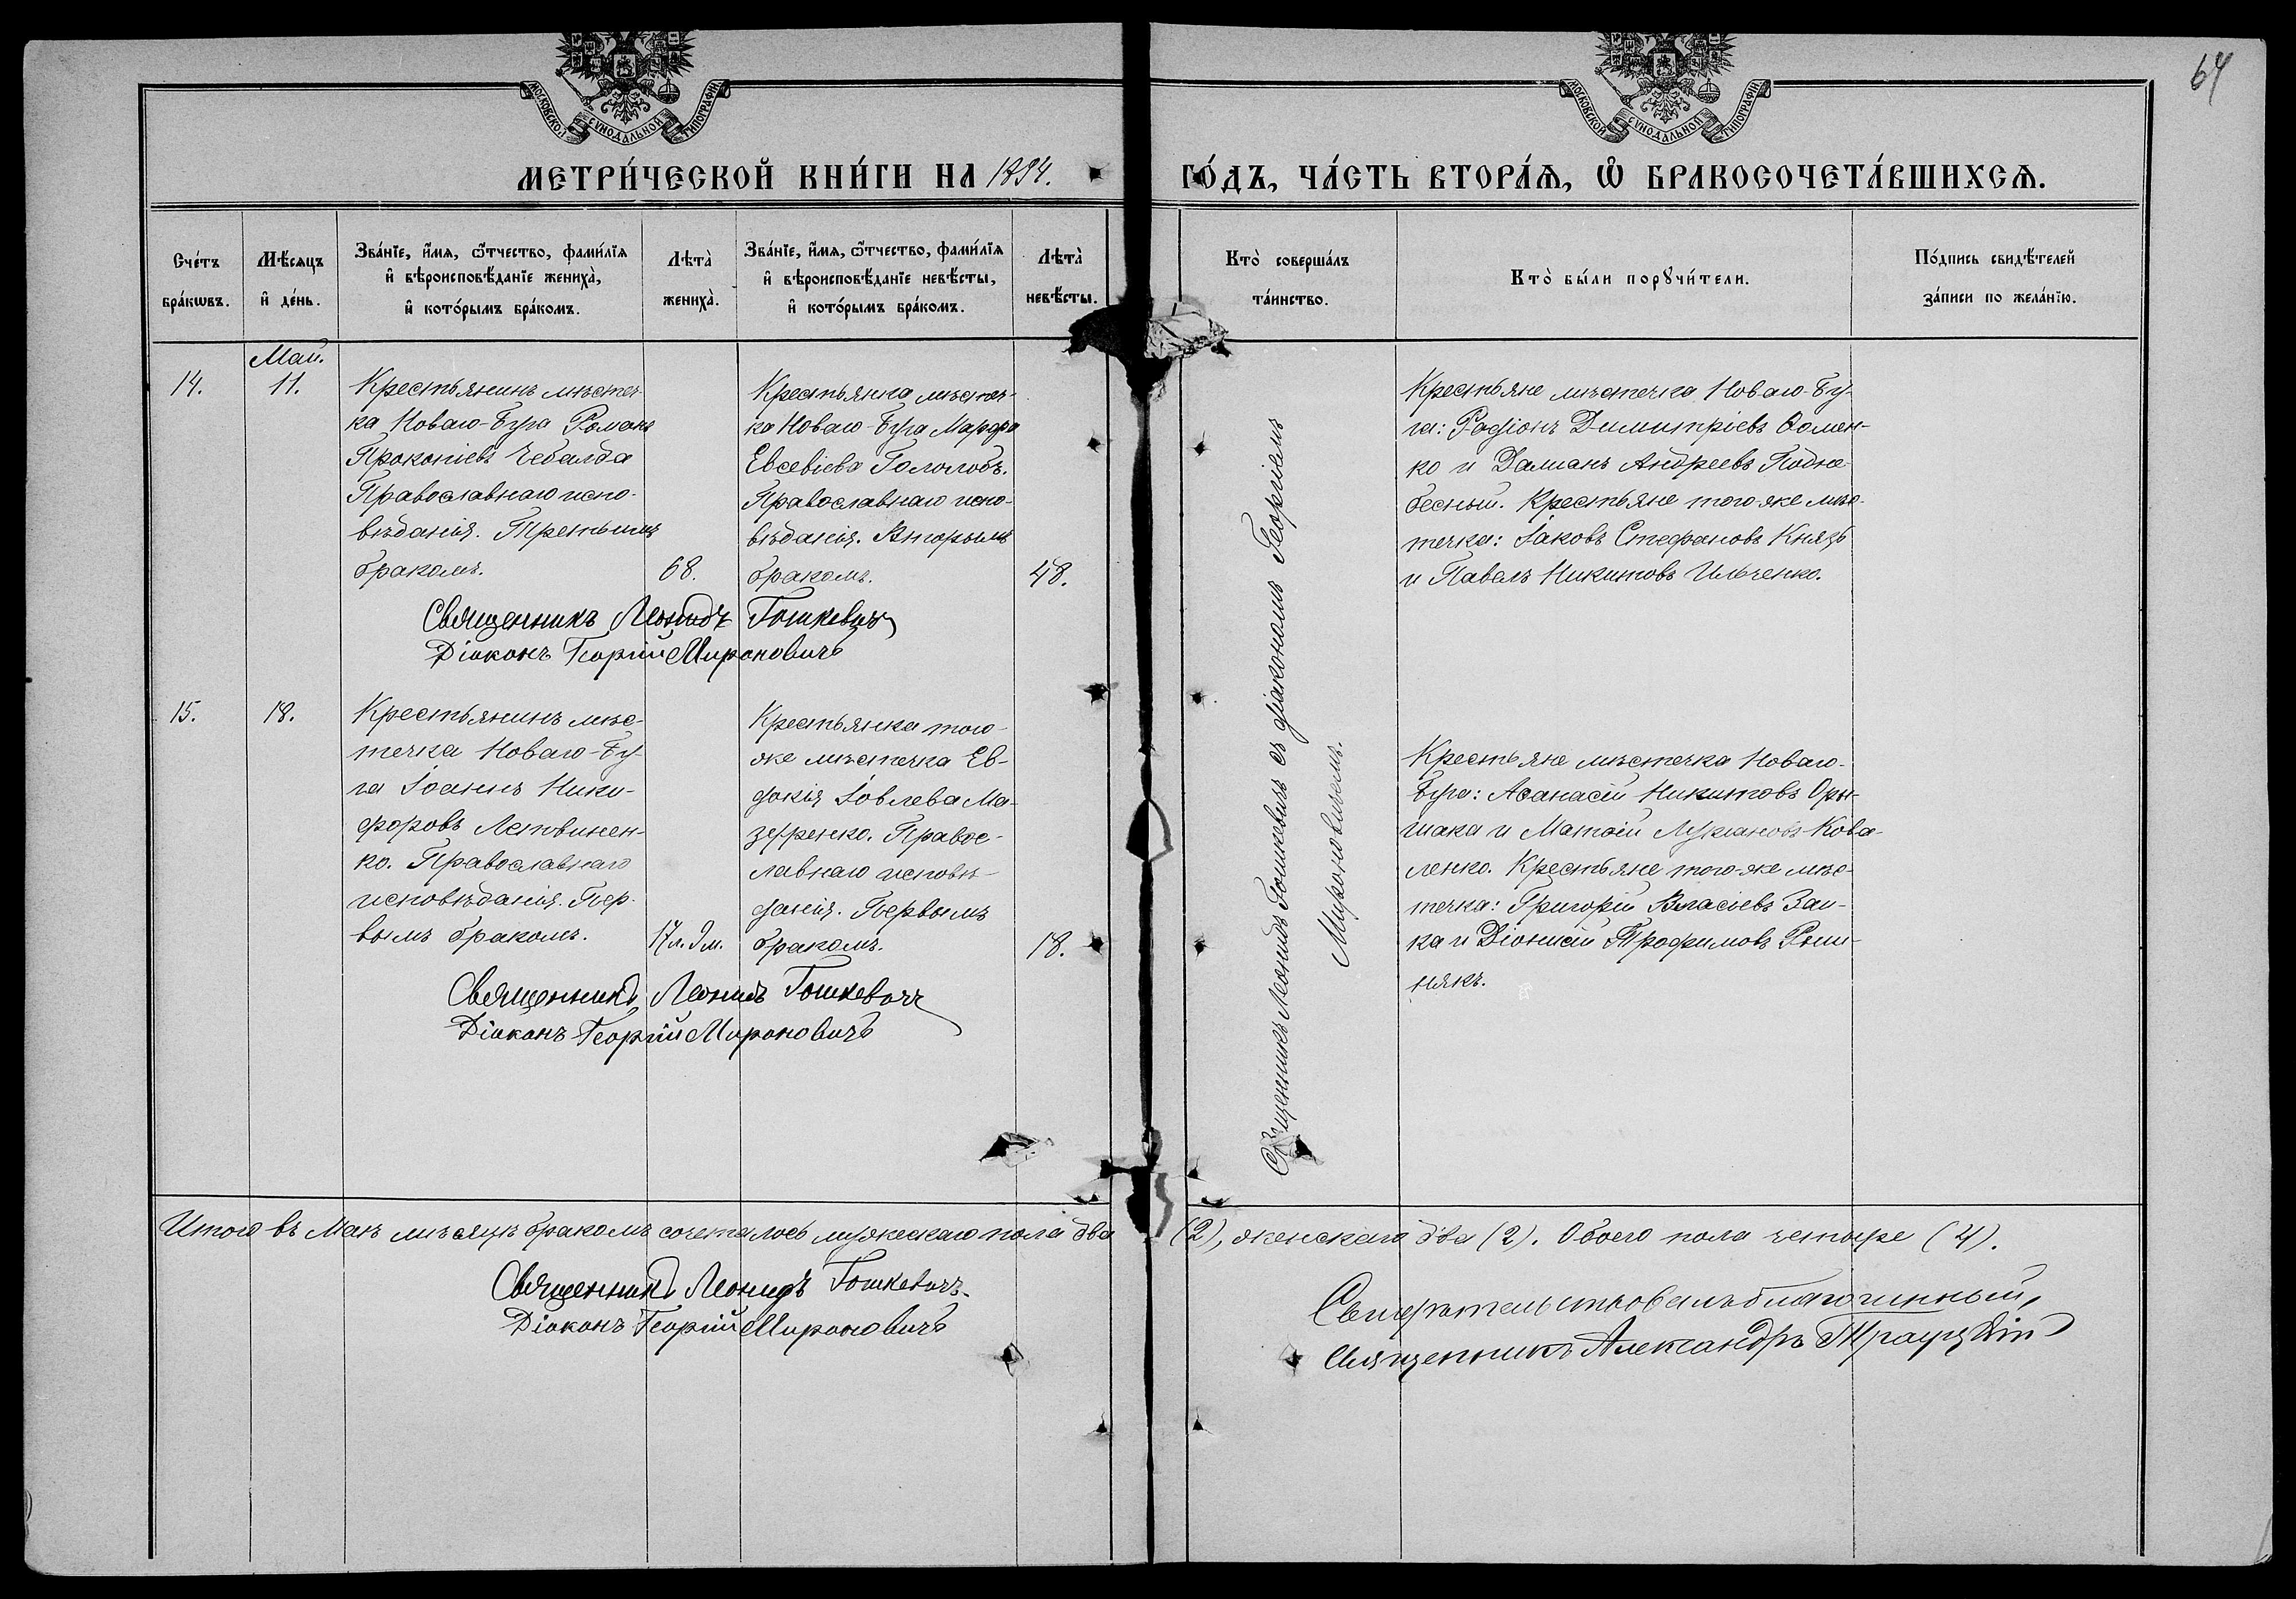 64
МОСКОВСКОЙ СѴНОДАЛЬНОЙ ТИПОГРАФІИ
МОСКОВСКОЙ СѴНОДАЛЬНОЙ ТИПОГРАФІИ
МЕТРИ́ЧЕСКОЙ КНИ́ГИ НА 1894.
ГО́ДЪ, ЧА́СТЬ ВТОРА́Ѧ, Ѡ҆ БРАКОСОЧЕТА́ВШИХСѦ.
Сче́тъ
бра́кѡвъ.
Мѣ́сяцъ
и҆ де́нь.
Зва́нїе, и҆́мя, ѻ҆́тчество, фами́лїя
и҆ вѣроисповѣ́данїе жениха̀,
и҆ кото́рымъ бра́комъ.
Лѣта̀
жениха̀.
Зва́нїе, и҆́мя, ѻ҆́тчество, фами́лїя
и҆ вѣроисповѣ́данїе невѣ́сты,
и҆ кото́рымъ бра́комъ.
Лѣта̀
невѣ́сты.
Кто̀ соверша́лъ
та́инство.
Кто̀ бы́ли порꙋчи́тели.
По́дпись свидѣ́телей
за́писи по жела́нїю.
14.
Май.
11.
Крестьянинъ мѣстеч-
ка Новаго-Буга Романъ
Прокопіевъ Чебалда
Православнаго испо-
вѣданія. Третьимъ
бракомъ.
68.
Крестьянка мѣстеч-
ка Новаго-Буга Марфа
Евсевіева Гололобъ.
Православнаго испо-
вѣданія. Вторымъ
бракомъ.
48.
Священникъ Леонидъ Гошкевичъ
Діаконъ Георгій Мироновичъ
Священникъ Леонидъ Гошкевичъ съ діакономъ Георгіемъ
Мироновичемъ.
Крестьяне мѣстечка Новаго-Бу-
га: Родіонъ Димитріевъ Ѳомен-
ко и Даміанъ Андреевъ Подне-
бесный. Крестьяне того-же мѣс-
течка: Іаковъ Стефановъ Князь
и Павелъ Никитовъ Ильченко.
15.
18.
Крестьянинъ мѣс-
течка Новаго-Бу-
га Іоаннъ Ники-
форовъ Летвинен-
ко. Православнаго
исповѣданія. Пер-
вымъ бракомъ.
17 л. 9 м.
Крестьянка того-
же мѣстечка Ев-
докія Іовлева Ма-
зуренко. Правос-
лавнаго исповѣ-
данія. Первымъ
бракомъ.
18.
Священникъ Леонидъ Гошкевичъ
Діаконъ Георгій Мироновичъ
Крестьяне мѣстечка Новаго-
Буга: Аѳанасій Никитовъ Оры-
шака и Матѳій Лукіановъ Кова-
ленко. Крестьяне того-же мѣс-
течка: Григорій Власіевъ Заи-
ка и Діонисій Трофимовъ
някъ.
Итого въ Маѣ мѣсяцѣ бракомъ сочеталось мужескаго пола два (2), женскаго два (2). Обоего пола четыре (4).
Священникъ Леонидъ Гошкевичъ.
Діаконъ Георгій Мироновичъ
Свидѣтельствовалъ благочинный,
священникъ Александръ